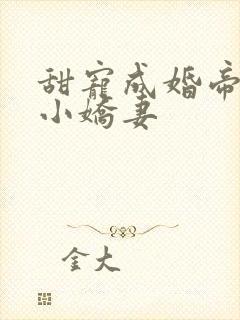 甜寵成婚帝
小嬌妻
金大